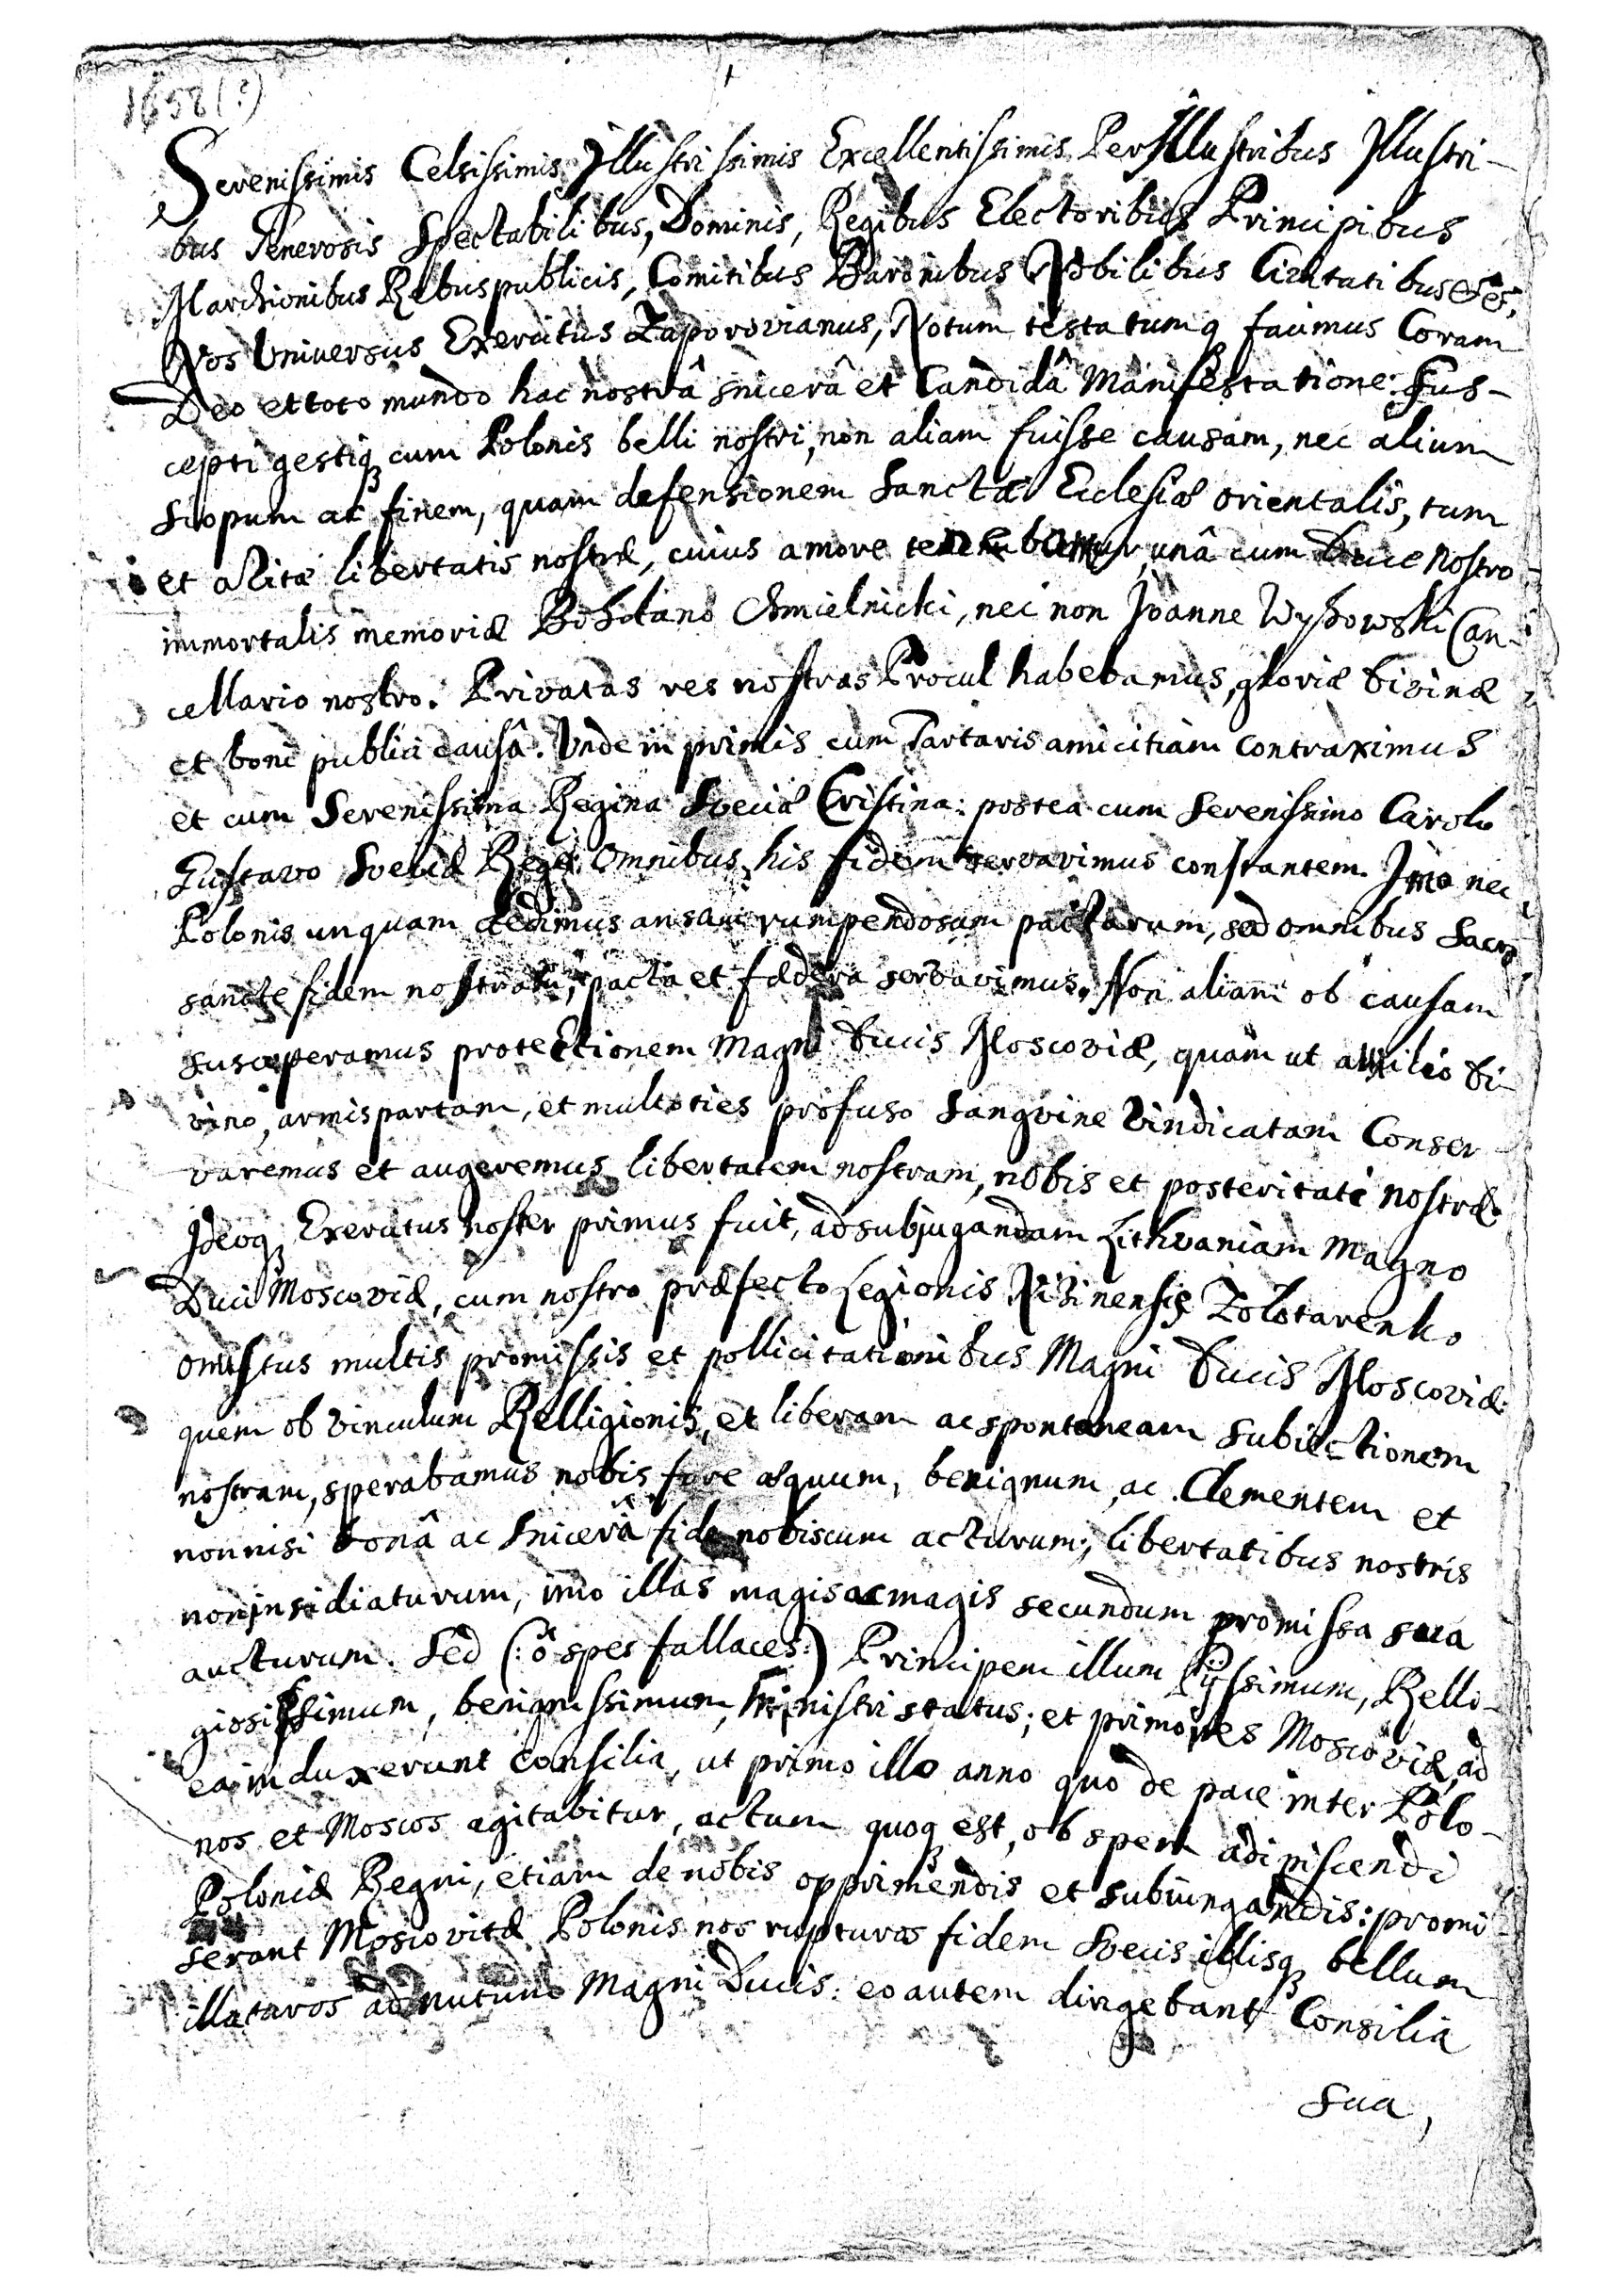 1658(?)
Serenissimis Celsissimis Illustrissimis Excellentissimis Perillustribus Illustri-
bus Generosis Spectabilibus, Dominis, Regibus Electoribus Principibus
Marchionibus Rebuspublicis, Comitibus Baronibus Nobilibus Civitatibus &c,
Nos Universus Exercitus Zaporovianus, Notum testatumq facimus Coram
Deo et toto mundo hac nostrâ sincerâ et Candidâ Manifestatione: Sus-
cepti gestiq cum Polonis belli nostri, non aliam fuisse causam, nec alium
scopum ac finem, quam defensionem Sanctæ Ecclesiæ orientalis, tum
et avitæ libertatis nostræ, cuius amore tenebamur, unâ cum Duce Nostro
immortalis memoriæ Bohdano Chmielnicki, nec non Joanne Wyhowski Can-
cellario nostro. Privatas res nostras Procul habebamus, gloriæ divinæ
et boni publici causâ. Unde in primis cum Tartaris amicitiam contraximus
et cum Serenissima Regina Sveciæ Cristina: postea cum Serenissimo Carolo
Gustavo Sveciæ Rege. Omnibus his fidem servavimus constantem. Imo nec
Polonis unquam dedimus ansam rumpendosam pactarum, sed omnibus Sacro
sancte fidem nostram, pacta et fædera servavimus. Non aliam ob causam
susceperamus protectionem Magni Ducis Moscoviæ, quam ut auxilio Di-
vino, armis partam, et multoties profuso Sangvine Vindicatam Conser
varemus et augeremus libertatem nostram, nobis et posteritati nostræ
Ideoq Exercitus noster primus fuit, ad subjugandam Lithvaniam Magno
Duci Moscoviæ, cum nostro præfecto Legionis Niżinensis Zolotarenko
onustus multis promissis et pollicitationibus Magni Ducis Moscoviæ
quem ob Vinculum Relligionis, et liberam ac spontaneam subiectionem
nostram, sperabamus nobis fore æquum, benignum, ac Clementem et
nonnisi bonâ ac sincerâ fide nobiscum acturum; libertatibus nostris
non insidiaturum, imo illas magis ac magis secundum promissa sua
aucturum. Sed (: ô spes fallaces :) Principem illum Pijssimum, Relli-
giosissimum, benignissimum, Ministri status; et primores Moscoviæ, ad
ea induxerunt Consilia, ut primo illo anno quo de pace inter Polo-
nos et Moscos agitabitur, actum quoq est, ob spem adipiscendi
Poloniæ Regni, etiam de nobis opprimendis et subiungandis: promi
serant Moscovitæ Polonis nos rupturos fidem Svecis illisq bellum
illaturos ad nutum Magni Ducis: eo autem dirigebant Consilia
sua,